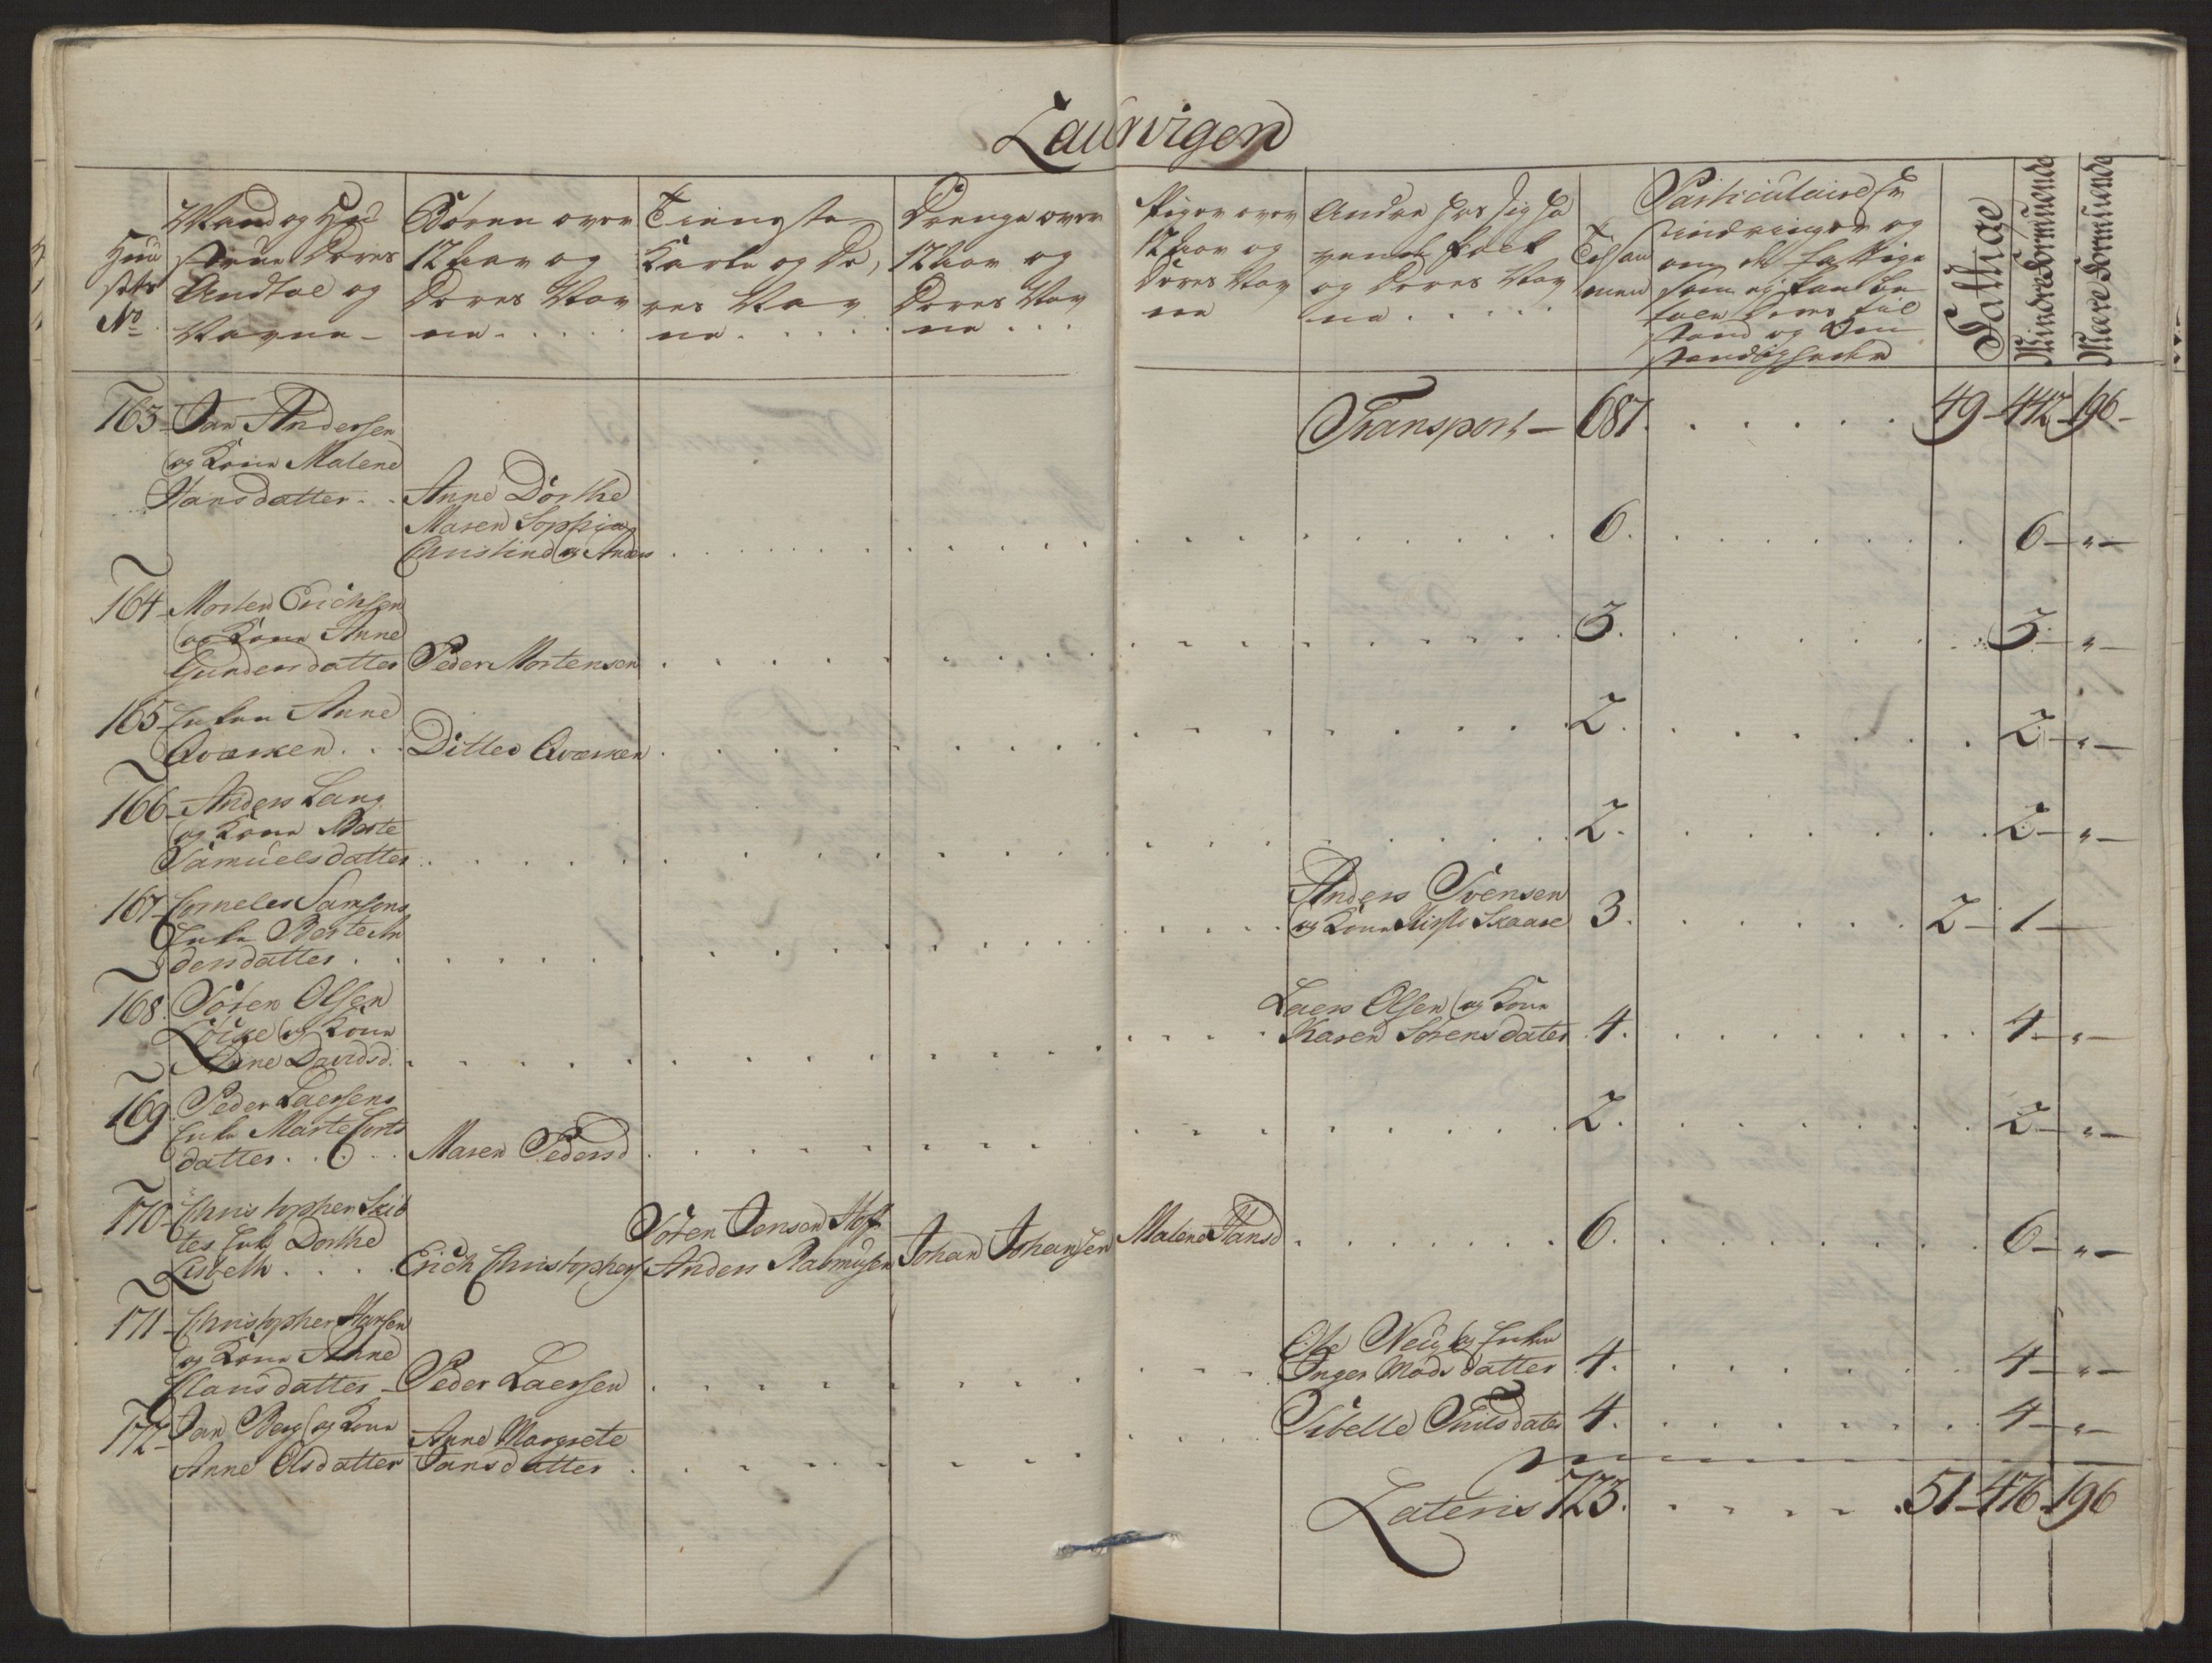 Laurvigen
Huu
sets
No
Mand og Hu
struer Deres
Andtal og
Navne
Børen over
12 aar og
Deres Nav
ne
Tieneste
Karle og De,
res Nav
ne
Drenge over
12 aar og
Deres Nav
ne
Piger over
12 aar og
Deres Nav
ne
Andre hos sig ha
vende folk
og Deres Nav
ne
Tilsam
men
Particulaire Er
indringer og
om de fattige
som ej kan be
tale Deres til
stand og Om
stændigheder
Fattige
Mindre Formuende
Mære Formuende
Transport - 687. 49 - 442 - 196 -
163 - Jan Andersen
og Kone Malene
Hansdatter Anne Dorthe
Maren Sophia
Christine og Anders 6. 6 - " -
164 - Morten Erichsen
og Kone Anne
Gundersdatter Peder Mortensen 3. 3 - " -
165 - Enken Anne
Qvæsken Ditlev Qvæsken 2. 2 - " -
166 - Anders Lang
og Kone Berte
Samuelsdatter 2. 2 - " -
167 - Corneles Samsons
Enke Berte An
dersdatter
Anders Svensen
og Kone Kirsti Skaare 3. 2 - 1 -
168. Søren Olsen
Löcke og Kone
Anne Davidsd.
Laers Olsen og Kone
Karen Sørensdater 4. 4 - " -
169. Peder Laersens
Enke Marte Corts
datter Maren Pedersd 2. 2 - " -
170 - Christopher Skib
tes Enke Dorthe
Lisbeth Erich Christophers
Søren Jensen Hoff
Anders Rasmusen Johan Johansen Malene Hansd 6. 6 - " -
171 - Christopher Hansen
og Kone Anne
Clausdatter - Peder Laersen
Ole Neug og Enken
Inger Madsdatter 4. 4 - " -
172 - Jan Berg og Kone
Anne Olsdatter
Anne Margrete
Jansdatter
Sibelle Truilsdater 4. 4 - " -
Lateris 723. 51 - 476 - 196